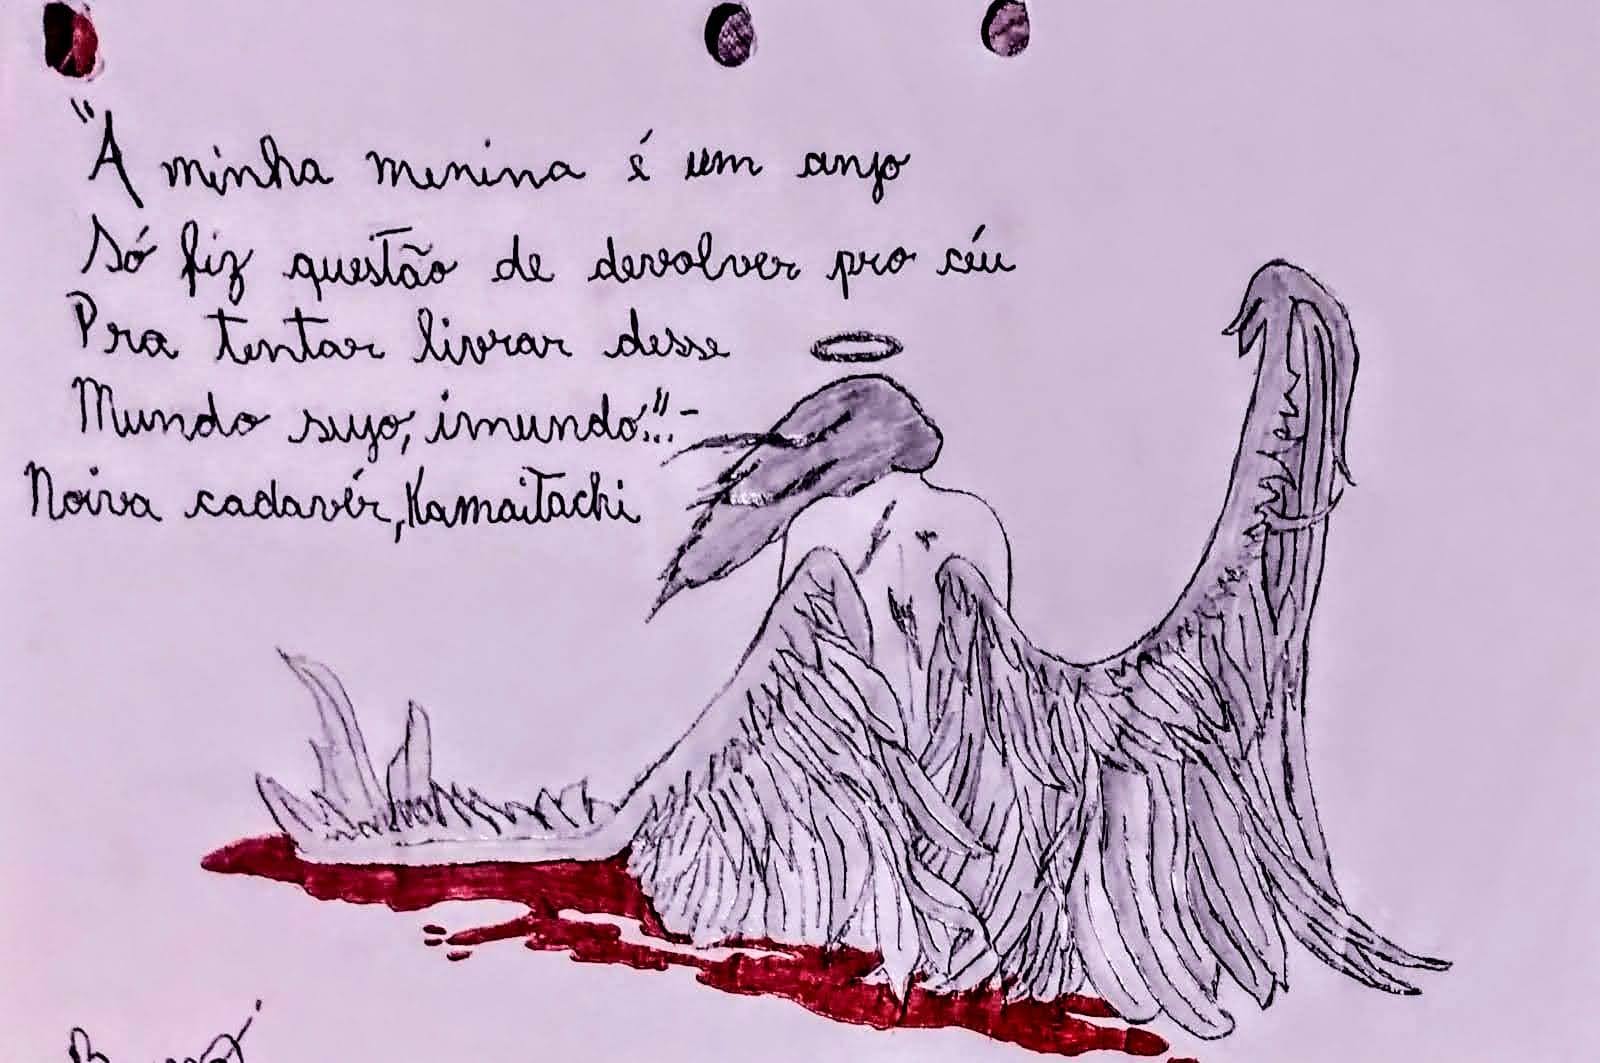 "A minha menina é um anjo
Só fiz questão de devolver pro céu
Pra tentar livrar desse
Mundo sujo, imundo..." -
Noiva cadavér, Kamaitachi